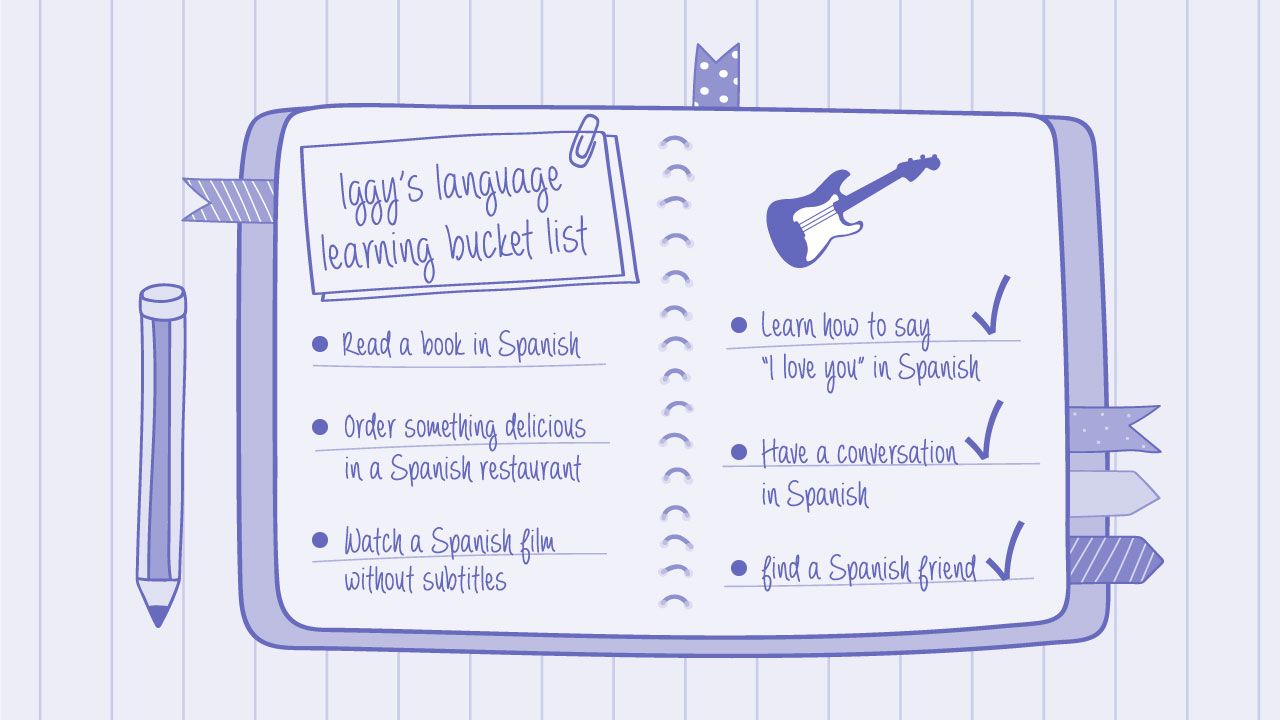 Iggy's language
learning bucket list
Read a book in Spanish
Order something delicious
in a Spanish restaurant
Watch a Spanish film
without subtitles
Learn how to say
"I love you" in Spanish
Have a conversation
in Spanish
find a Spanish friend